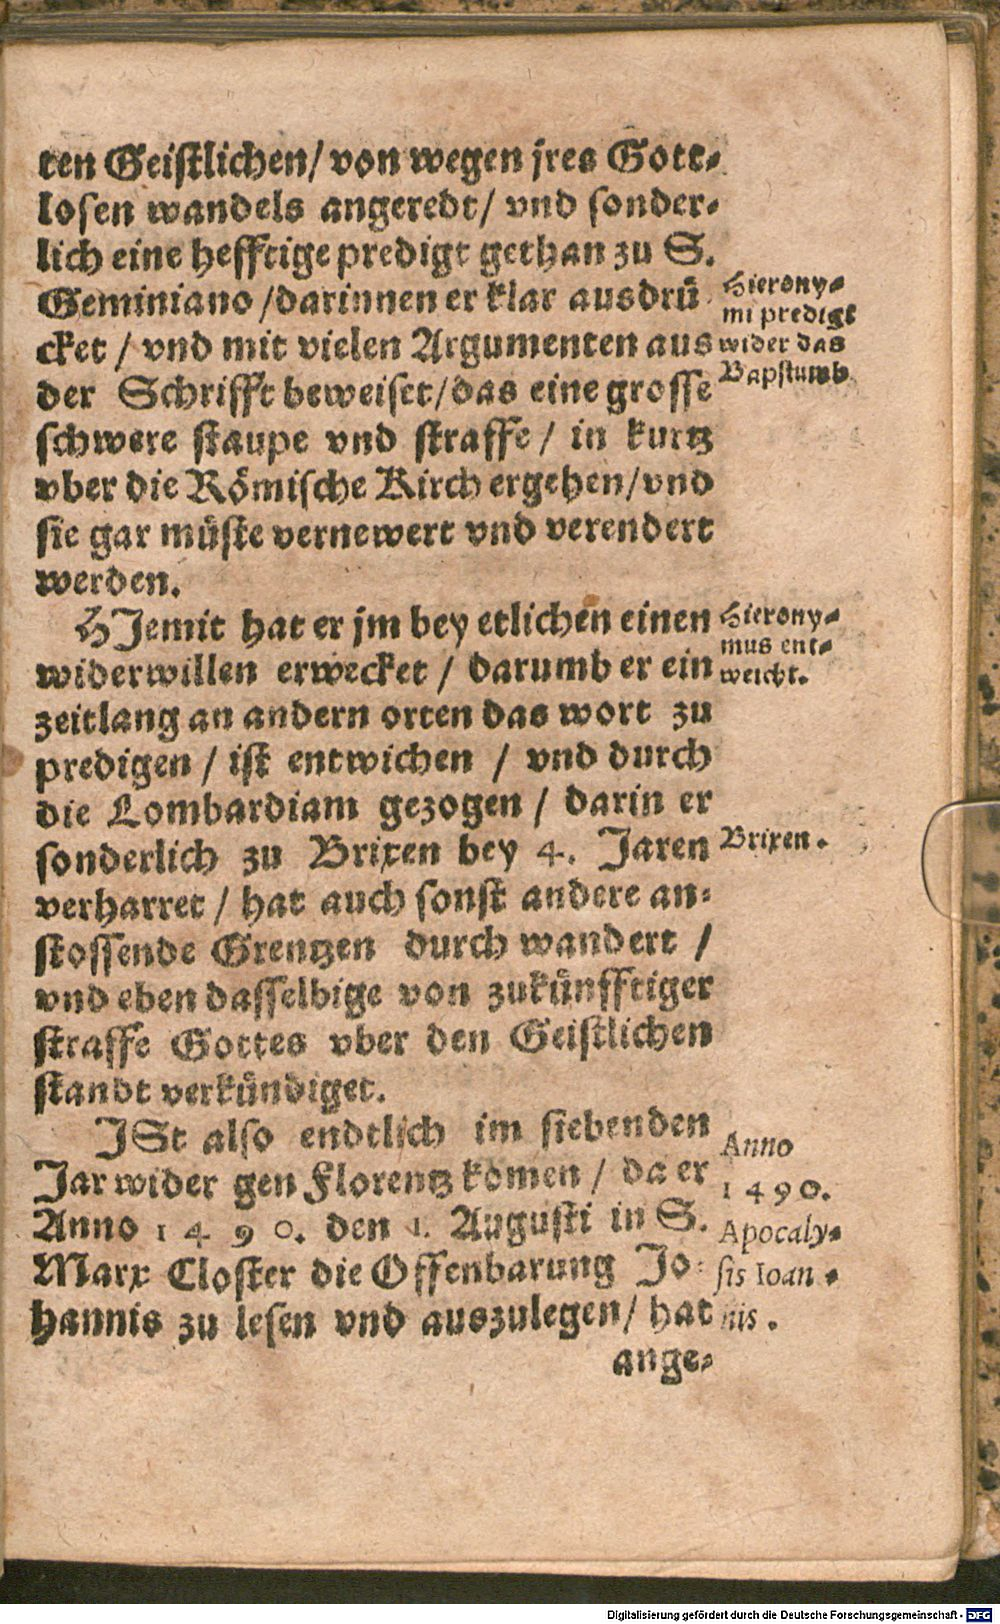 ten Geistlichen/ von wegen jres Gott-
losen wandels angeredt/ vnd sonder-
lich eine hefftige predigt gethan zu S.
Geminiano /darinnen er klar ausdrü
cket / vnd mit vielen Argumenten aus
der Schrifft beweiset/das eine grosse
schwere staupe vnd straffe / in kurtz
vber die Römische Kirch ergehen/vnd
sie gar müste vernewert vnd verendert
werden.
Hierony-
mi predigt
wider das
Bapstumb
HJemit hat er jm bey etlichen einen
widerwillen erwecket / darumb er ein
zeitlang an andern orten das wort zu
predigen / ist entwichen / vnd durch
die Lombardiam gezogen / darin er
sonderlich zu Brixen bey 4. Jaren
verharret / hat auch sonst andere an-
stossende Grentzen durch wandert /
vnd eben dasselbige von zukünfftiger
straffe Gottes vber den Geistlichen
standt verkündiget.
Hierony-
mus ent-
weicht.
Brixen.
JSt also endtlich im siebenden
Jar wider gen Florentz komen / da er
Anno 1490. den 1. Augusti in S.
Marx Closter die Offenbarung Jo-
hannis zu lesen vnd auszulegen/ hat
Anno
1490.
Apocaly-
sis Ioan-
nis.
ange-
Digitalisierung gefördert durch die Deutsche Forschungsgemeinschaft - DFG